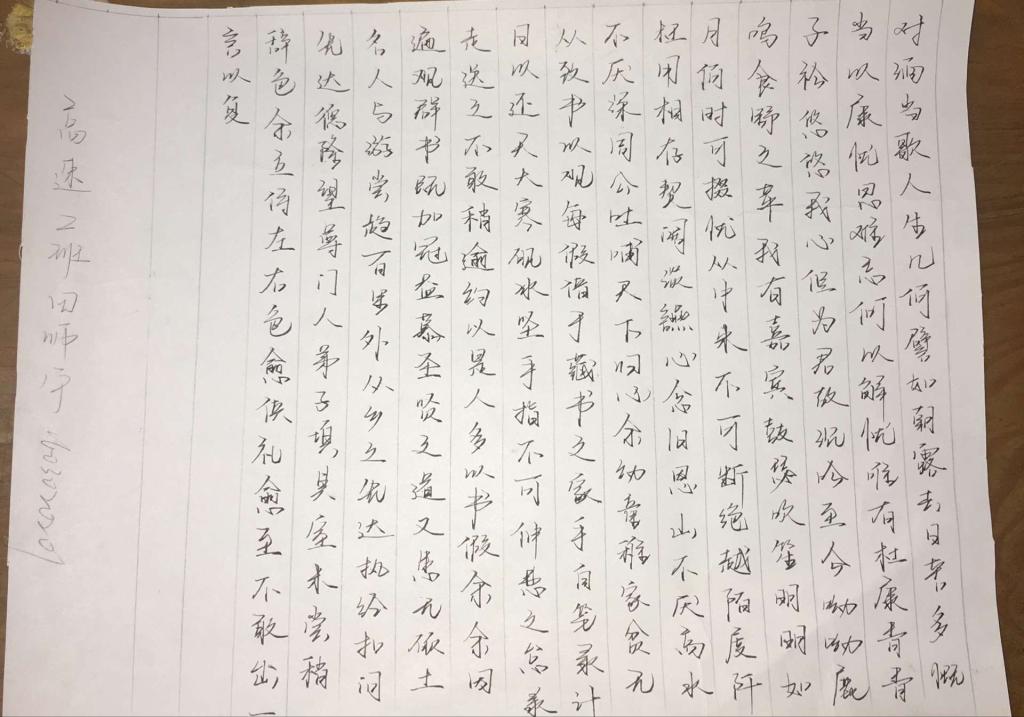 对酒当歌人生几何譬如朝露去日苦多慨
当以康忧思难忘何以解忧唯有杜康青青
子衿悠悠我心但为君故沉吟至今呦呦鹿
鸣食野之苹我有嘉宾鼓瑟吹笙明明如
月何时可掇忧从中来不可断绝越陌度阡
枉用相存契阔谈讌心念旧恩山不厌高水
不厌深周公吐哺天下归心余幼童稚家贫无
从致书以观每假借于藏书之家手自笔录计
日以还天大寒砚冰坚手指不可伸之怠录
走送之不敢稍逾约以是人多以书假余余因
遍观群书既加冠益慕圣贤之道又患无士
名人与游尝趋百里外从乡之先达执经扣问
先达德隆望尊门人弟子填其室未尝稍
辞色余立侍左右色愈礼愈至不敢出一
言以复
高速2班田师宇